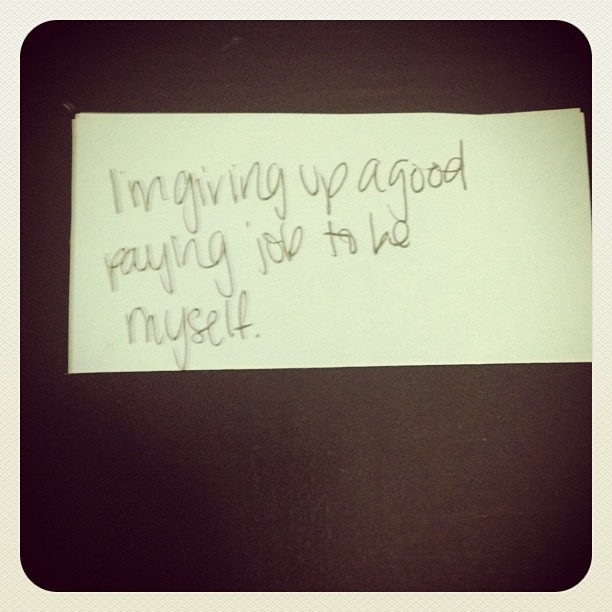 I'm giving up a good
paying job to be
myself.